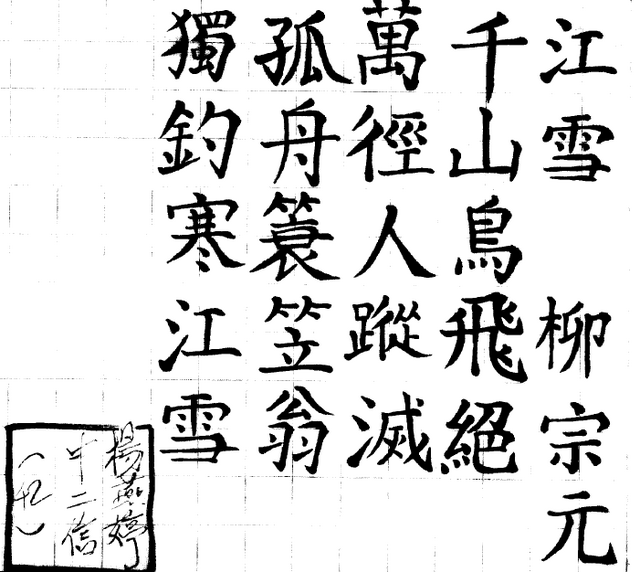 江雪 柳宗元
千山鳥飛絕
萬徑人蹤滅
孤舟簑笠翁
獨釣寒江雪
楊燕婷
中二信